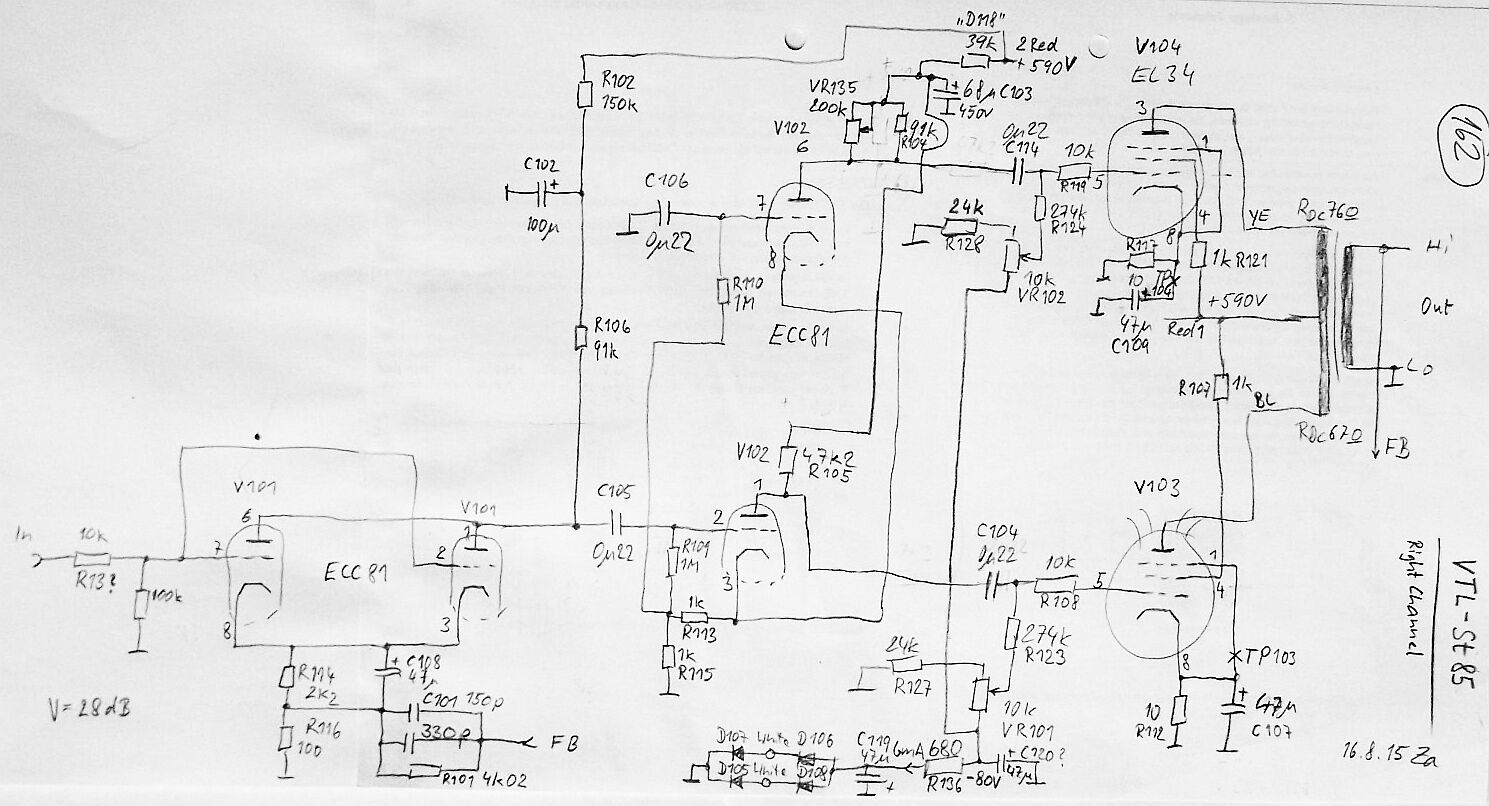 „D118"
39k
2Red
+590V
V104
EL34
162
R102
150k
VR135
200k
68µ C103
450V
V102
6
91k
R104
0µ22
C114
10k
R119
5
3
1
4
8
C102
+
100µ
C106
0µ22
7
8
24k
R128
274k
R124
10k
VR102
YE
RDC76Ω
Hi
R117
10
TP
104
1k R121
+590V
47µ
C109
Red1
Out
R110
1M
ECC81
R106
91k
R107
1k
BL
Lo
RDC67Ω
FB
V102
47k2
R105
1
V101
6
V101
1
C105
0µ22
2
3
V103
In
10k
R13?
7
100k
ECC81
2
R109
1M
C104
0µ22
10k
R108
5
1
4
8
3
1k
R113
1k
R115
8
274k
R123
TP103
VTL-St85
Right Channel
R114
2k2
+ C108
47µ
24k
R127
10k
VR101
10
R112
+
47µ
C107
V=28dB
R116
100
C101 150p
330p
FB
R101 4k02
D107 White D106
D105 White D108
C119
47µ
+
6mA
680
R136
-80V
+ C120?
47µ
16.8.15 Za